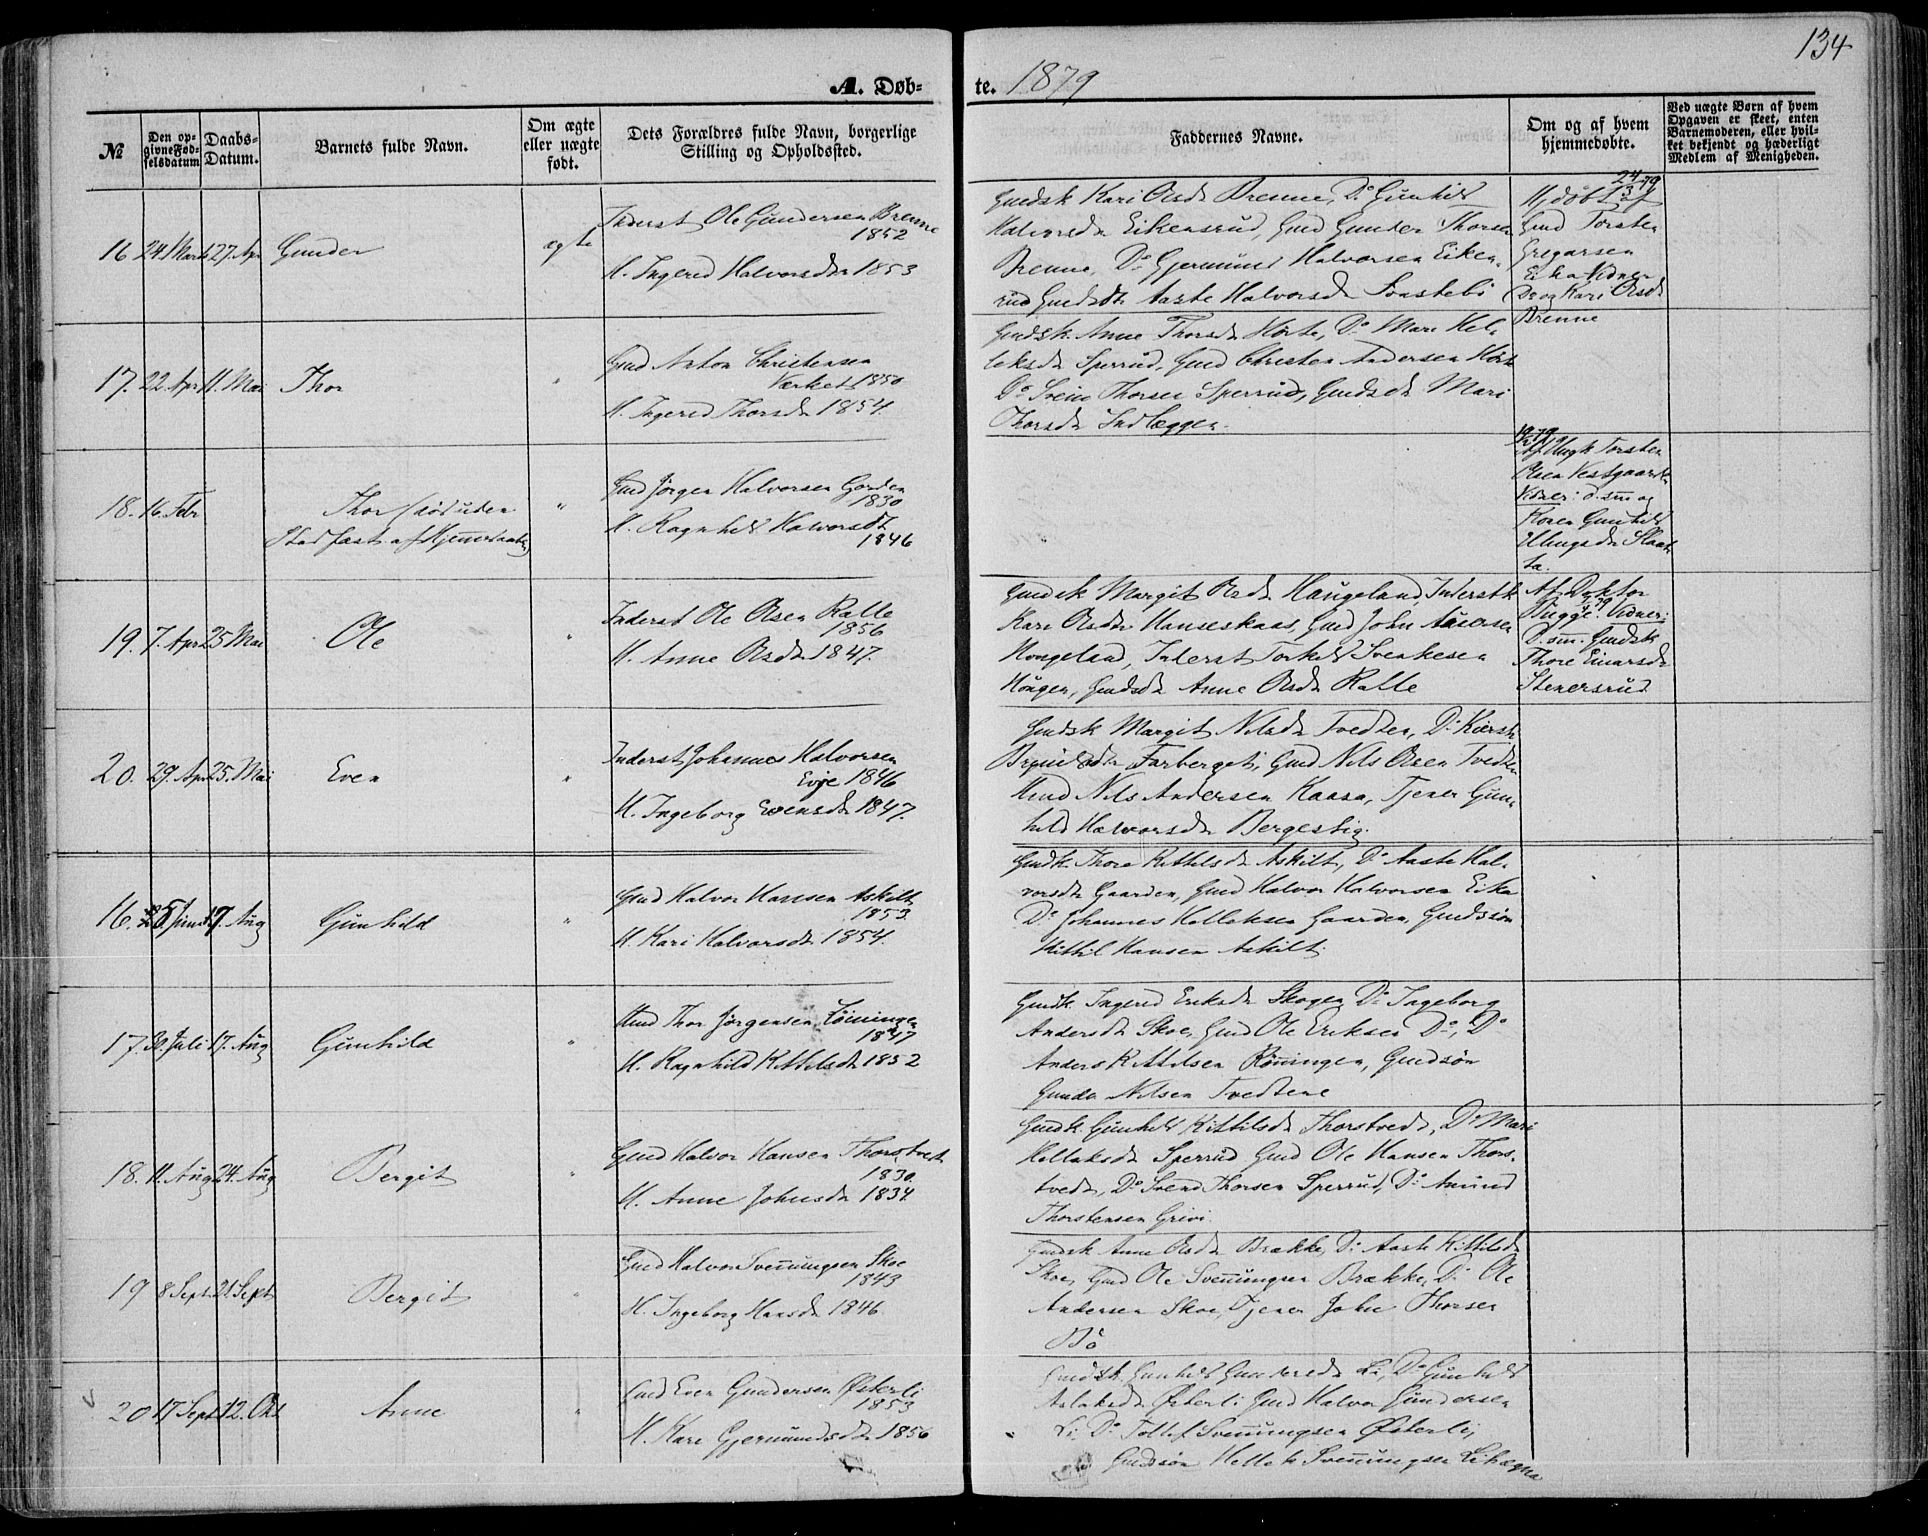 134
A. Døb-
te. 1879
№
Den op-
givne Fød-
selsdatum
Daabs-
Datum.
Barnets fulde Navn.
Om ægte
eller uægte
født.
Dets Forældres fulde Navn, borgerlige
Stilling og Opholdssted.
Faddernes Navne.
Om og af hvem
hjemmedøbte.
Ved uægte Børn af hvem
Opgaven er skeet, enten
Barnemoderen, eller hvil-
ket bekjendt og hæderligt
Medlem af Menigheden.
16 24 Marts 27 Apr Gunder ægte
Inderst Ole Gundersen Brenne
1852
H. Ingered Halvorsdr 1853
Gmdsk Kari Olsdr Brenne, Do Gunhild
Halvorsdr Eikensrud, Gmd Gunder Thorsen
Brenne, Do Gjermund Halvorsen Eiken-
rud Gmdsdtr Aaste Halvorsdr
Hjdøbt 24/3 79
Gmd Torsten
Gregarsen
Eika Vidner
Do og Kari Olsdr
Brenne
17. 22. Apr 11. Mai Thor "
Gmd Anton Christensen
Værket 1850
H. Ingered Thorsdr 1854.
Gmdsk. Anne Thorsdr Hørte, Do Mari Hel-
leksdr Sperrud, Gmd Christen Andersen Hørte
Do Svein Thorsen Sperrud, Gmdsdr Mari
Thorsdr Indlæggen.
18. 16. Febr Thor død uden
Stadfæst. af Hjemmedaaben "
Gmd Jørgen Halvorsen Gorden
1830
H. Ragnhild Halvorsdtr
1846
Af Ungk Torsten
Olsen Vestgaard
Vidner: d. sm og
Konen Gunhild
19. 7. Apr 25 Mai Ole "
Inderst Ole Olsen Ralle
1856
H. Anne Olsdr 1847.
Gmdsk Margit Olsdr Haugeland, Inderstk
Kari Olsdtr Hanseskaas, Gmd John
Inderst Torkild
Gmdsdr Anne Olsdr Ralle
Af Doktor
Bugge. Vidner:
D. sm. Gmdsk
Thore Einarsdr
Stenersrud
20. 29. Apr 25. Mai Even "
Inderst Johannes Halvorsen
Evje 1846
H. Ingeborg Evensdr 1847.
Gmdsk Margit Nilsdr Tvedten, Do Kierst.
Farberget, Gmd Nils Olsen Tvedten
Nils Andersen Kaasa, Tjener Gun-
hild Halvorsdr Bergestig.
16. Juni 17. Aug Gunhild "
Gmd Halvor Hansen Askilt
1853.
H. Kari Halvorsdr 1854.
Gmdk. Thore Kittilsdr Askilt, Do Aaste Hal-
vorsdr Gaarden, Gmd Halvor Halvorsen Eika
Do Johannes Helleksen Gaarden, Gmdssøn
Kittil Hansen Askilt.
17. 30. Juli 17. Aug Gunhild "
Thor Jørgensen
1847
H. Ragnhild Kittilsdr 1852
Gmdk. Ingered Eriksdr Skogen Do Ingeborg
Andersdr Skoe, Gmd Ole Eriksen Do, Do
Anders Kittilsen Rønningen, Gmdssøn
Gunder Nilsen Tvedtene
18. 11. Aug 24. Aug Bergit "
Gmd Halvor Hansen Thorstvedt
1830.
H. Anne Johnsdr 1834.
Gmdk. Gunhild Kittilsdr Thorstvedt, Do Mari
Helleksdr Sperrud Gmd Ole Hansen Thors-
tvedt, Do Svend Thorsen Sperrud, Do Amund
Thorstensen Grivi.
19 8 Sept. 21. Sept Bergit "
Gmd Halvor Svennungsen Skoe
1843
H. Ingeborg Hansdr 1846.
Gmdsk Anne Olsdr Brække, Do Aaste Kittilsdr
Skoe, Gmd Ole Svennungsen Brække, Do Ole
Andersen Skoe, Tjener John Thorsen
Bø
20 17 Sept. 12. Okt Anne "
Gmd Even Gundersen Østerli
1853
H. Kari Gjermundsdr 1856
Gmdsk. Gunhild Gundersdr Li, Do Gunhild
Aslaksdr Østerli Gmd Halvor Gundersen
Li Do Tollef Svennungsen Østerli,
Gmdssøn Hellek Svennungsen Lihagna